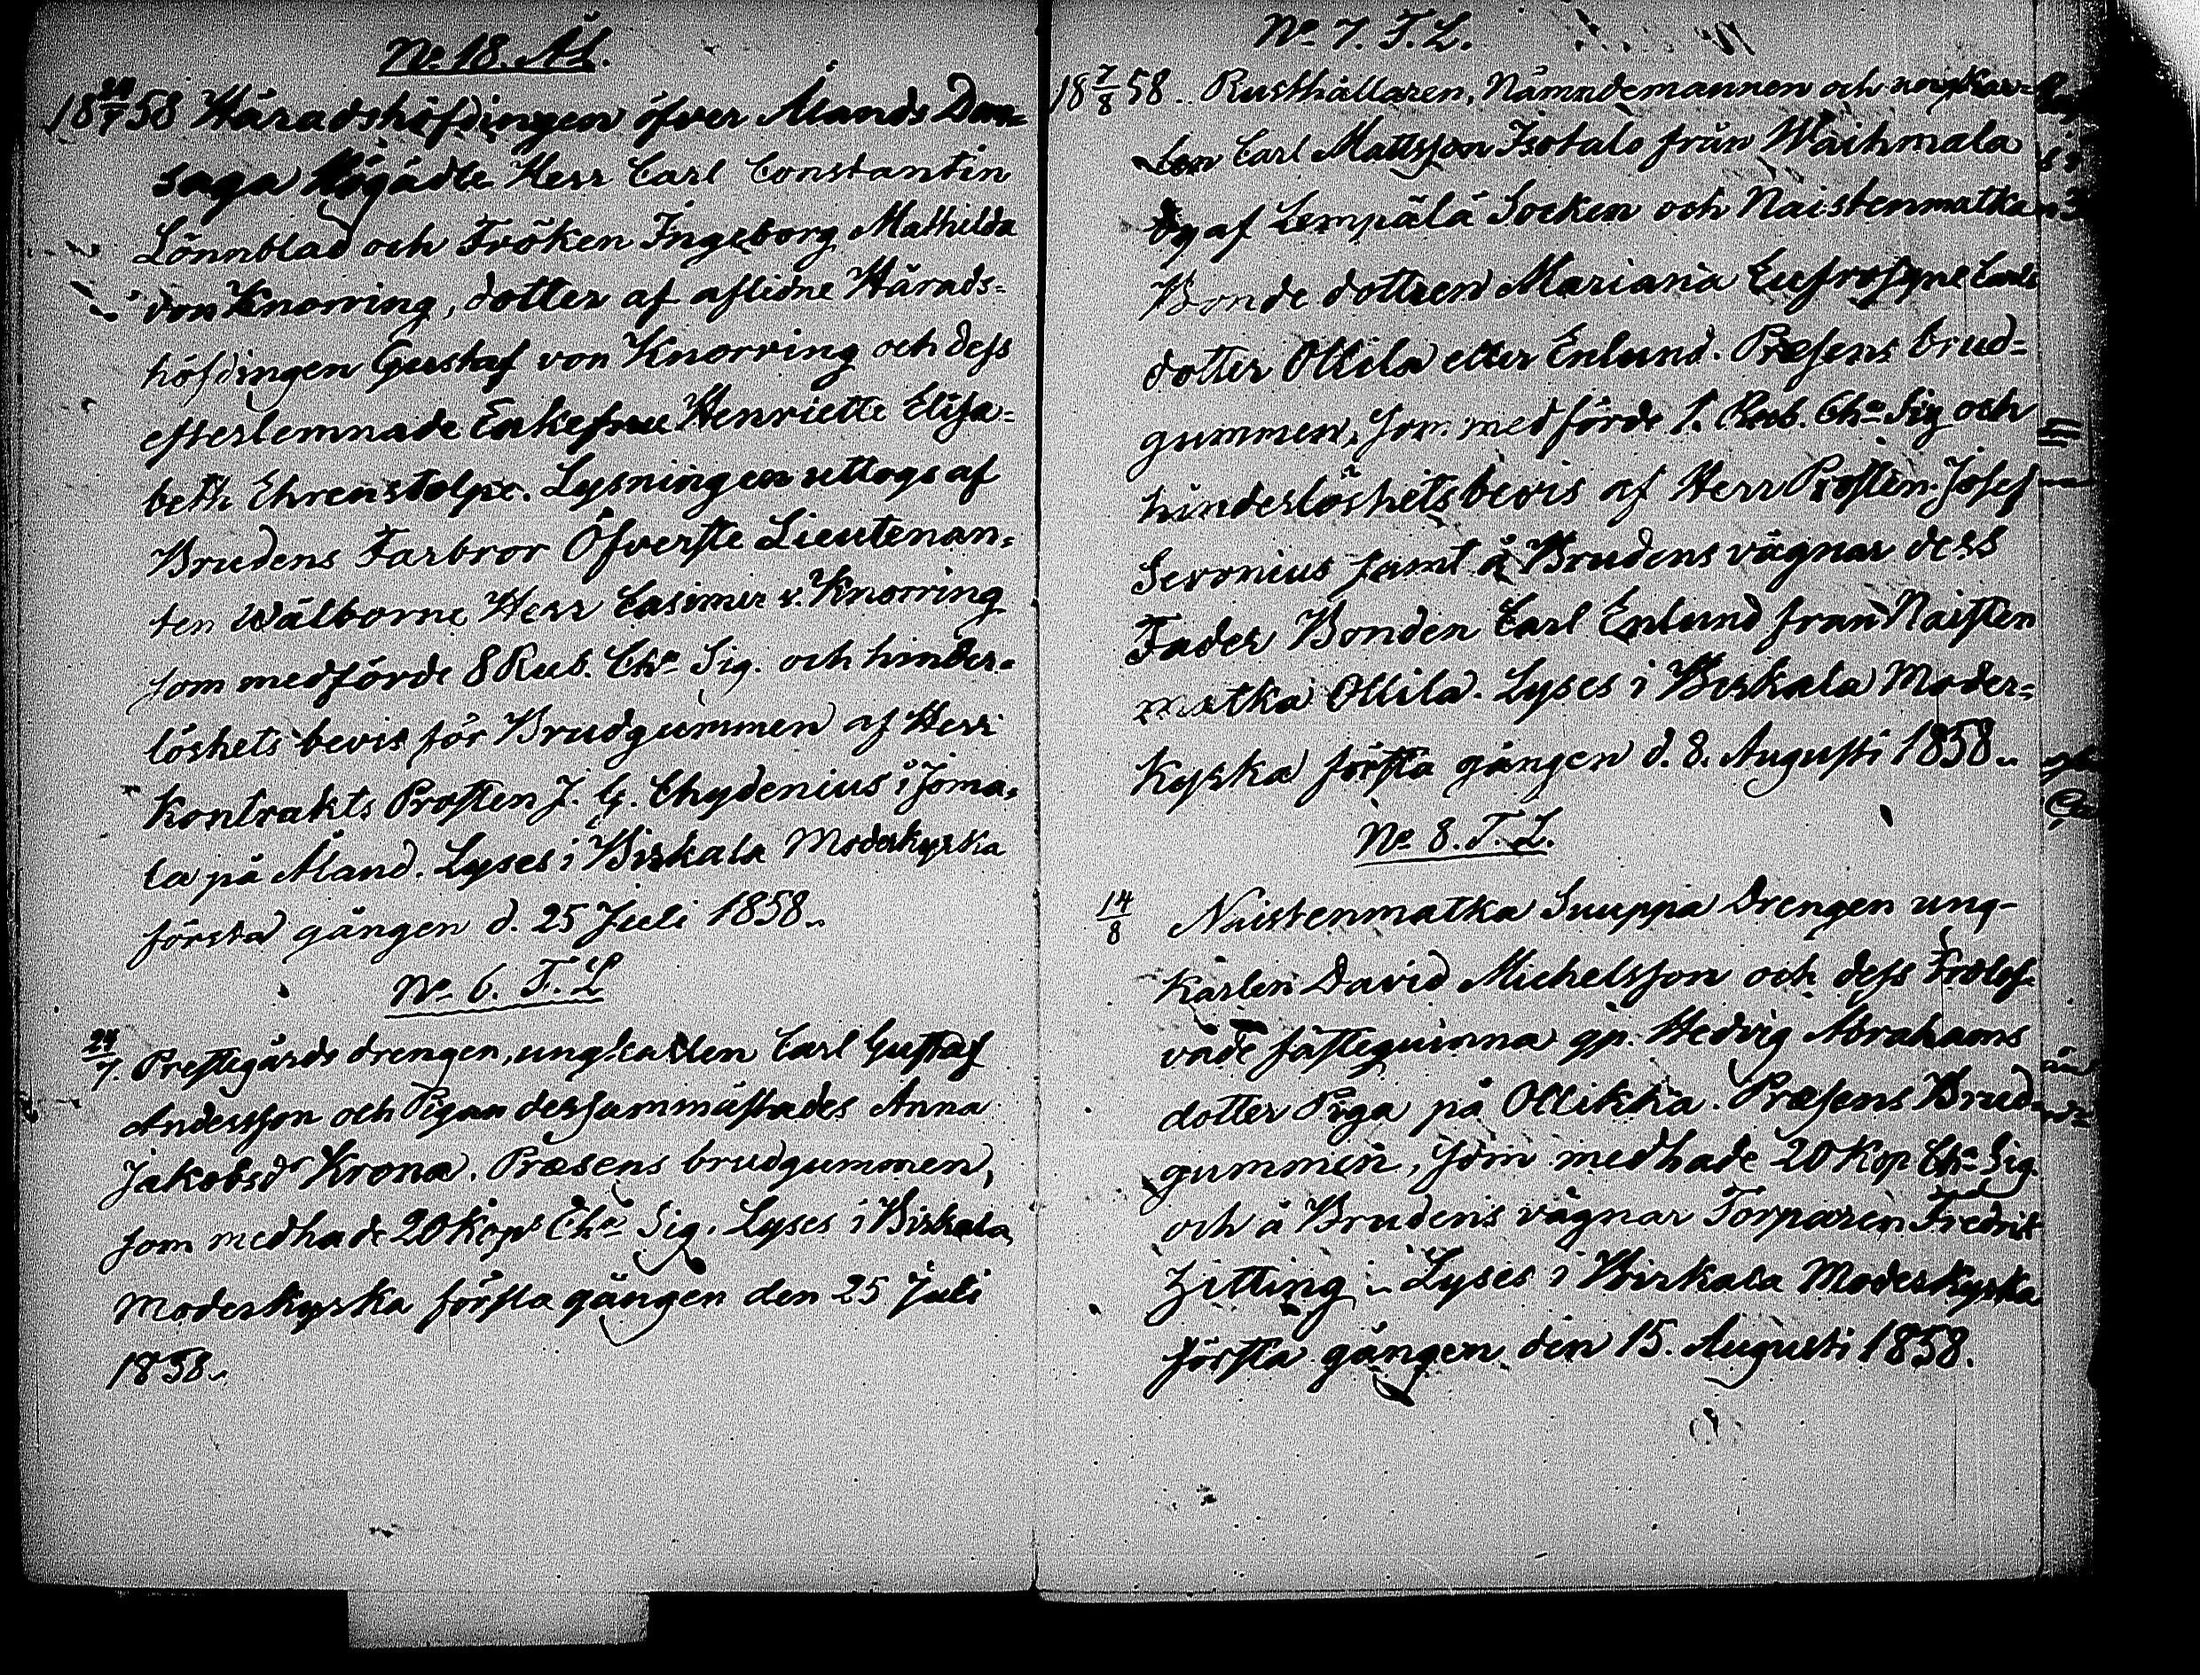 No 18. ÄL.
18 24/7 58 Häradshöfdingen öfver Ålands Dom=
saga Högädle Herr Carl Constantin
Lönnblad och Fröken Ingeborg Mathilda
von Knorring, dotter af aflidne Härads=
höfdingen Gustaf von Knorring och dess
efterlemnade Enkefru Henriette Elisa=
beth Ehrenstolpe. Lysningen uttogs af
Brudens Farbror Öfverste Lieutenan=
ten Wälborne Herr Casimir v. Knorring
som medförde 8 Rub. Cha Sig. och hinder=
löshets bevis för Brudgummen af Herr
Kontrakts Prosten J. G. Chydenius i Joma=
la på Åland. Lyses i Birkala Moderkyrka
första gången d. 25 Juli 1858.
No 6. T. L
24/7. Prestegårds drengen, ungkarlen Carl Gustaf
Andersson och Pigan dersammastädes Anna
Jakobsd Krona. Præsens brudgummen,
som medhade 20 Kop Cha Sig. Lyses i Birkala
Moderkyrka första gången den 25 Juli
1858.
No 7. T. L.
18 7/8 58. Rusthållaren, Nämndemannen och ungkar=
len Carl Mattsson Isotalo från Waihmala
By af Lempälä Socken och Naistenmatka
Bonde dottren Mariana Eufrosyne Carls
dotter Ollila eller Enlund. Præsens brud=
gummen, som medförde 1. Rub. Cha Sig och
hinderlöshets bevis af Herr Prosten Josef
Seronius samt å Brudens vägnar dess
Fader Bonden Carl Enlund från Naisten
matka Ollila. Lyses i Birkala Moder=
Kyrka första gången d. 8. Augusti 1858.
No 8. T. L.
14/8 Naistenmatka Suuppa Drengen ung-
karlen David Michelsson och dess Trolof-
vade fästeqvinna qp. Hedvig Abrahams
dotter Piga på Ollikka. Præsens Brud
gummen, som medhade 20 Kop Cha Sig.
och å Brudens vägnar Torparen Fredrik
Zitting. Lyses i Birkala Moderkyrka
första gången den 15. Augusti 1858.